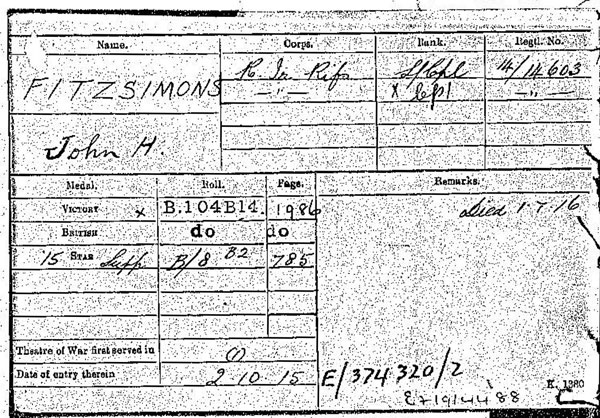 Name. Corps. Rank. Regtl. No.
FITZSIMONS R. Ir. Rif. L/Cpl 14/14603
—"— x Cpl —"—
John H.
Medal. Roll. Page. Remarks.
VICTORY x B.104B14. 1986 Died 1.7.16
BRITISH do do
15 STAR Supp B/8 B2 785
Theatre of War first served in (1)
Date of entry therein 2 10 15
E/374320/2
K. 1380